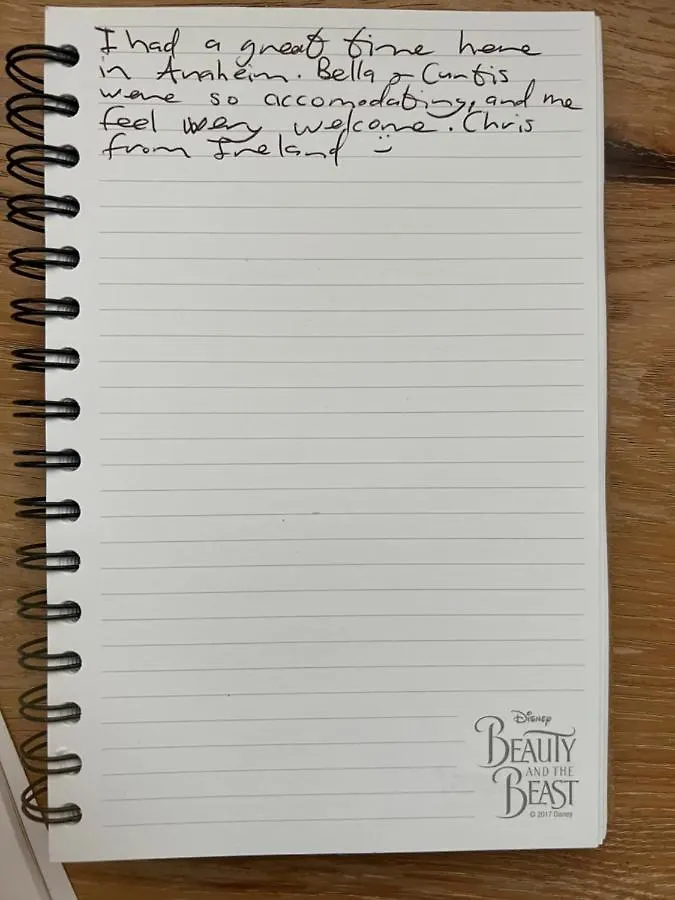 I had a great time here
in Anaheim. Bella & Curtis
were so accomodating, and me
feel very welcome. Chris
from Ireland :)
Disney
BEAUTY
AND THE
BEAST
© 2017 Disney